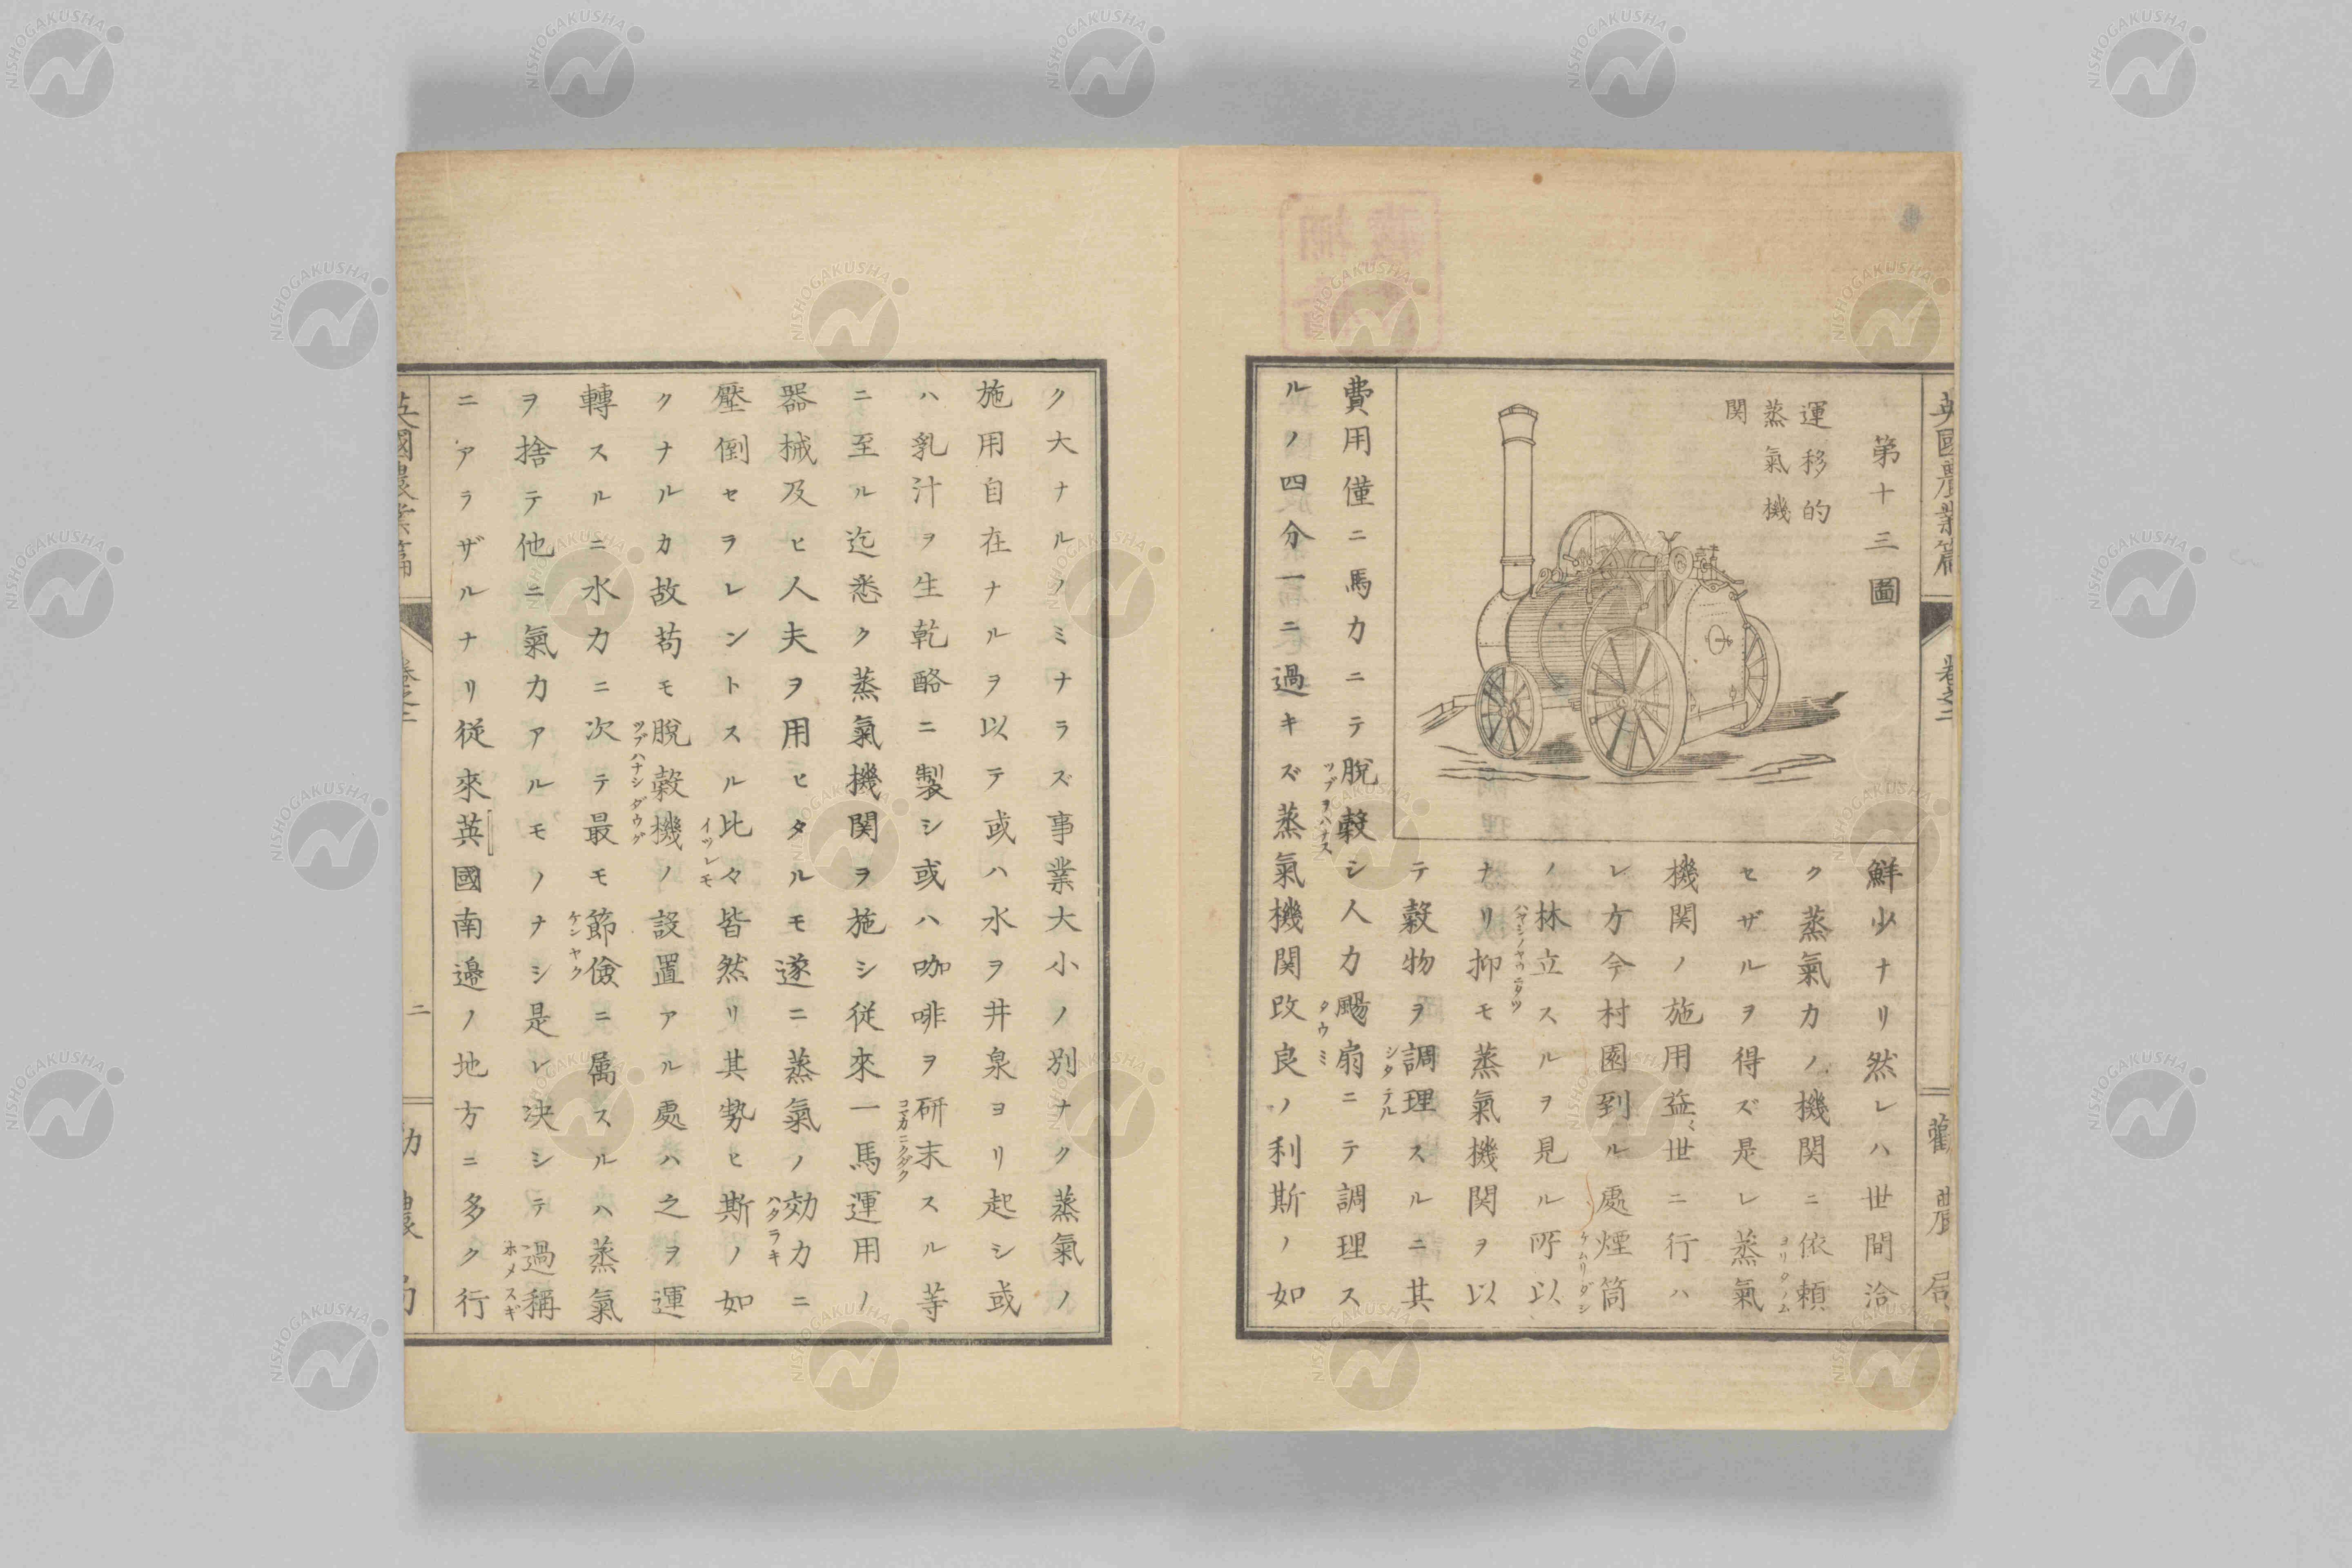 英國農業篇
卷之二
勸農局
第十三圖
運移的
蒸氣機
関
鮮少ナリ然レハ世間洽
ク蒸氣力ノ機関ニ依頼
ヨリタノム
セザルヲ得ズ是レ蒸氣
機関ノ施用益〻世ニ行ハ
レ方今村園到ル處煙筒
ケムリダシ
ノ林立スルヲ見ル所以
ハヤシノヤウニタツ
ナリ抑モ蒸氣機関ヲ以
テ穀物ヲ調理スルニ其
シタテル
費用僅ニ馬力ニテ脫穀シ人力颺扇ニテ調理ス
ツブヲハナス
タウミ
ルノ四分一ニ過キズ蒸氣機関改良ノ利斯ノ如
ク大ナルノミナラズ事業大小ノ別ナク蒸氣ノ
施用自在ナルヲ以テ或ハ水ヲ井泉ヨリ起シ或
ハ乳汁ヲ生乾酪ニ製シ或ハ咖啡ヲ研末スル等
コマカニクダク
ニ至ル迄悉ク蒸氣機関ヲ施シ従來一馬運用ノ
器械及ヒ人夫ヲ用ヒタルモ遂ニ蒸氣ノ効力ニ
ハタラキ
壓倒セヲレントスル比々皆然リ其勢ヒ斯ノ如
イヅレモ
クナルカ故苟モ脫穀機ノ設置アル處ハ之ヲ運
ツブハナシダウグ
轉スルニ水力ニ次テ最モ節儉ニ属スルハ蒸氣
ケンヤク
ヲ捨テ他ニ氣力アルモノナシ是レ決シテ過稱
ホメスギ
ニアラザルナリ従來英國南邉ノ地方ニ多ク行
英國農業篇
卷之二
二
勸農局
NISHOGAKUSHA